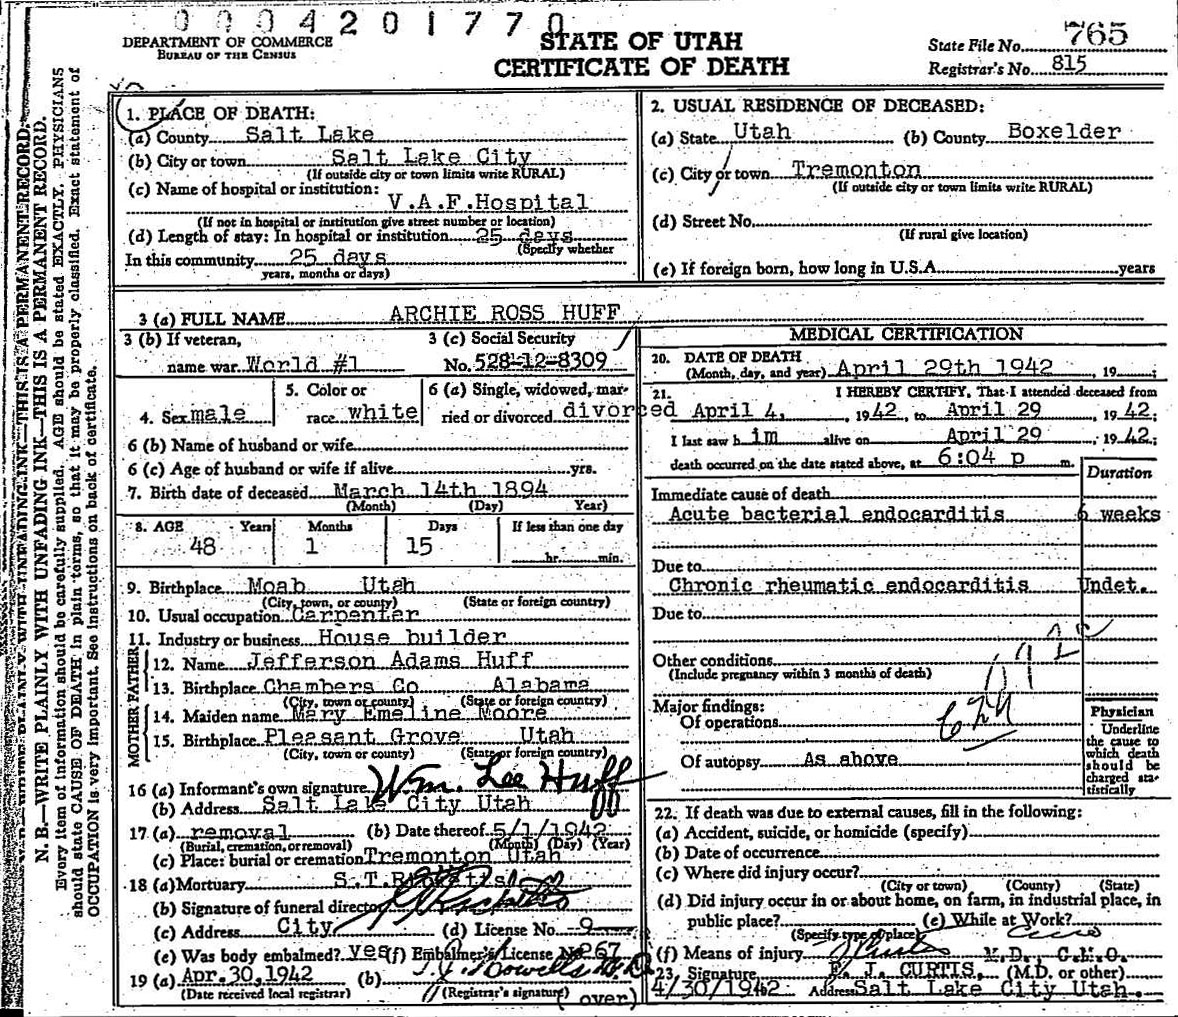 0004201770
DEPARTMENT OF COMMERCE
BUREAU OF THE CENSUS
STATE OF UTAH
CERTIFICATE OF DEATH
State File No. 765
Registrar's No. 815
N. B.—WRITE PLAINLY WITH UNFADING INK—THIS IS A PERMANENT RECORD.
Every item of information should be carefully supplied. AGE should be stated EXACTLY. PHYSICIANS
should state CAUSE OF DEATH in plain terms, so that it may be properly classified. Exact statement of
OCCUPATION is very important. See instructions on back of certificate.
1. PLACE OF DEATH:
(a) County Salt Lake
(b) City or town Salt Lake City
(If outside city or town limits write RURAL)
(c) Name of hospital or institution:
V.A.F.Hospital
(If not in hospital or institution give street number or location)
(d) Length of stay: In hospital or institution 25 days
(Specify whether
In this community 25 days
years, months or days)
2. USUAL RESIDENCE OF DECEASED:
(a) State Utah (b) County Boxelder
(c) City or town Tremonton
(If outside city or town limits write RURAL)
(d) Street No.
(If rural give location)
(e) If foreign born, how long in U.S.A. years
3 (a) FULL NAME ARCHIE ROSS HUFF
3 (b) If veteran,
name war World #1
3 (c) Social Security
No. 528-12-8309
4. Sex male
5. Color or
race white
6 (a) Single, widowed, mar-
ried or divorced divorced
6 (b) Name of husband or wife
6 (c) Age of husband or wife if alive yrs.
7. Birth date of deceased March 14th 1894
(Month) (Day) Year)
8. AGE Years Months Days If less than one day
48 1 15 hr. min.
9. Birthplace Moab Utah
(City, town, or county) (State or foreign country)
10. Usual occupation Carpenter
11. Industry or business House builder
FATHER
12. Name Jefferson Adams Huff
13. Birthplace Chambers Co Alabama
(City, town or county) (State or foreign country)
MOTHER
14. Maiden name Mary Emeline Moore
15. Birthplace Pleasant Grove Utah
(City, town or county) (State or foreign country)
16 (a) Informant's own signature Wm. Lee Huff
(b) Address Salt Lake City Utah
17 (a) removal (b) Date thereof 5/1/1942
(Burial, cremation, or removal) (Month) (Day) (Year)
(c) Place: burial or cremation Tremonton Utah
18 (a) Mortuary S.T.
(b) Signature of funeral director
(c) Address City (d) License No. 9
(e) Was body embalmed? yes (f) Embalmer's License No. 267
19 (a) Apr.30,1942 (b)
(Date received local registrar) (Registrar's signature) (over)
MEDICAL CERTIFICATION
20. DATE OF DEATH
(Month, day, and year) April 29th 1942, 19 ;
21. I HEREBY CERTIFY, That I attended deceased from
April 4, , 1942, to April 29 , 1942;
I last saw him alive on April 29 , 1942;
death occurred on the date stated above, at 6:04 p m.
Duration
Immediate cause of death
Acute bacterial endocarditis 6 weeks
Due to
Chronic rheumatic endocarditis Undet.
Due to
Other conditions
(Include pregnancy within 3 months of death)
Major findings:
Of operations
Of autopsy As above
Physician
Underline
the cause to
which death
should be
charged sta-
tistically
22. If death was due to external causes, fill in the following:
(a) Accident, suicide, or homicide (specify)
(b) Date of occurrence
(c) Where did injury occur?
(City or town) (County) (State)
(d) Did injury occur in or about home, on farm, in industrial place, in
public place? (e) While at Work?
(Specify type of place)
(f) Means of injury M.D., C.M.O.
23. Signature F. J. CURTIS, (M.D. or other)
4/30/1942 Address Salt Lake City Utah.